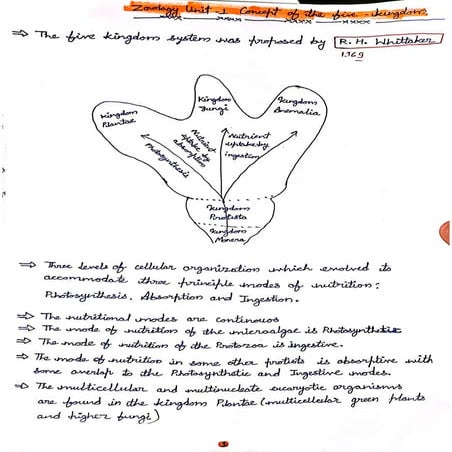 Zoology Unit-1 Concept of the five-kingdom
⇒ The five kingdom system was proposed by R. H. Whittaker
1969
Kingdom
Plantae
Kingdom
Fungi
Kingdom
Anemalia
Photosynthesis
Nutrient
uptake by
absorption
Nutrient
uptake by
ingestion
Kingdom
Protista
Kingdom
Monera
⇒ Three levels of cellular organization which evolved to
accommodate three principle modes of nutrition:
Photosynthesis, Absorption and Ingestion.
⇒ The nutritional modes are continuous
⇒ The mode of nutrition of the microalgae is Photosynthetic
⇒ The mode of nutrition of the Protozoa is ingestive.
⇒ The mode of nutrition in some other protists is absorptive with
some overlap to the Photosynthetic and Ingestive modes.
⇒ The multicellular and multinucleate eucaryotic organisms
are found in the kingdom Plantae (multicellular green plants
and higher fungi)
1